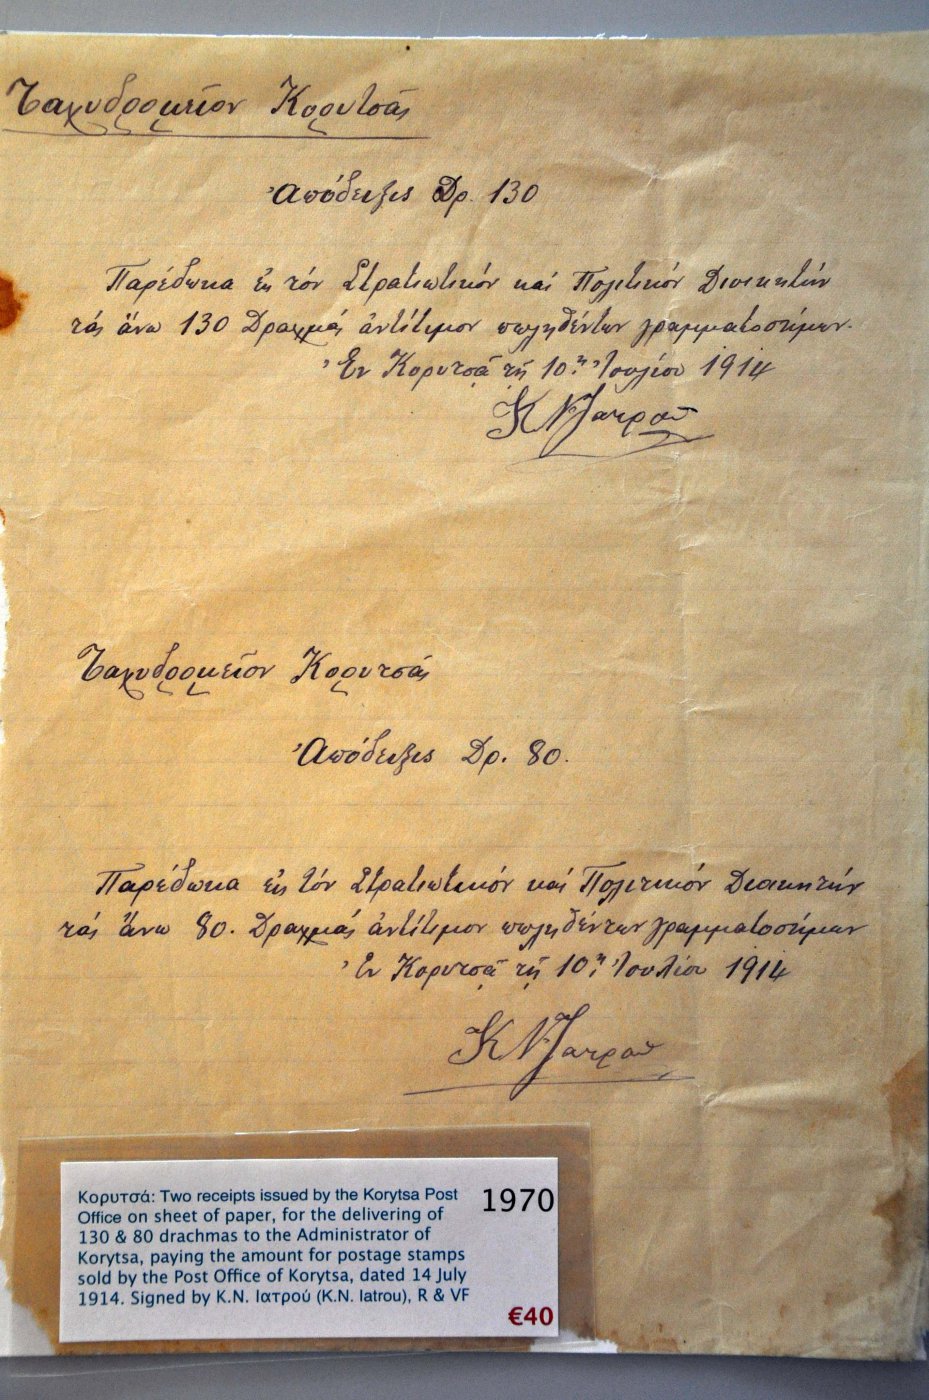 Ταχυδρομεῖον Κορυτσᾶς
Ἀπόδειξις Δρ. 130
Παρέδωκα εἰς τόν Στρατιωτικόν καί Πολιτικόν Διοικητήν
τάς ἄνω 130 Δραχμάς ἀντίτιμον πωληθέντων γραμματοσήμων.
Ἐν Κορυτσᾷ τῇ 10ῃ Ἰουλίου 1914
Κ Ν Ιατρού
Ταχυδρομεῖον Κορυτσᾶς
Ἀπόδειξις Δρ. 80.
Παρέδωκα εἰς τόν Στρατιωτικόν καί Πολιτικόν Διοικητήν
τάς ἄνω 80. Δραχμάς ἀντίτιμον πωληθέντων γραμματοσήμων
Ἐν Κορυτσᾷ τῇ 10ῃ Ἰουλίου 1914
Κ Ν Ιατρού
Κορυτσά: Two receipts issued by the Korytsa Post
Office on sheet of paper, for the delivering of
130 & 80 drachmas to the Administrator of
Korytsa, paying the amount for postage stamps
sold by the Post Office of Korytsa, dated 14 July
1914. Signed by Κ.Ν. Ιατρού (K.N. Iatrou), R & VF
1970
€40